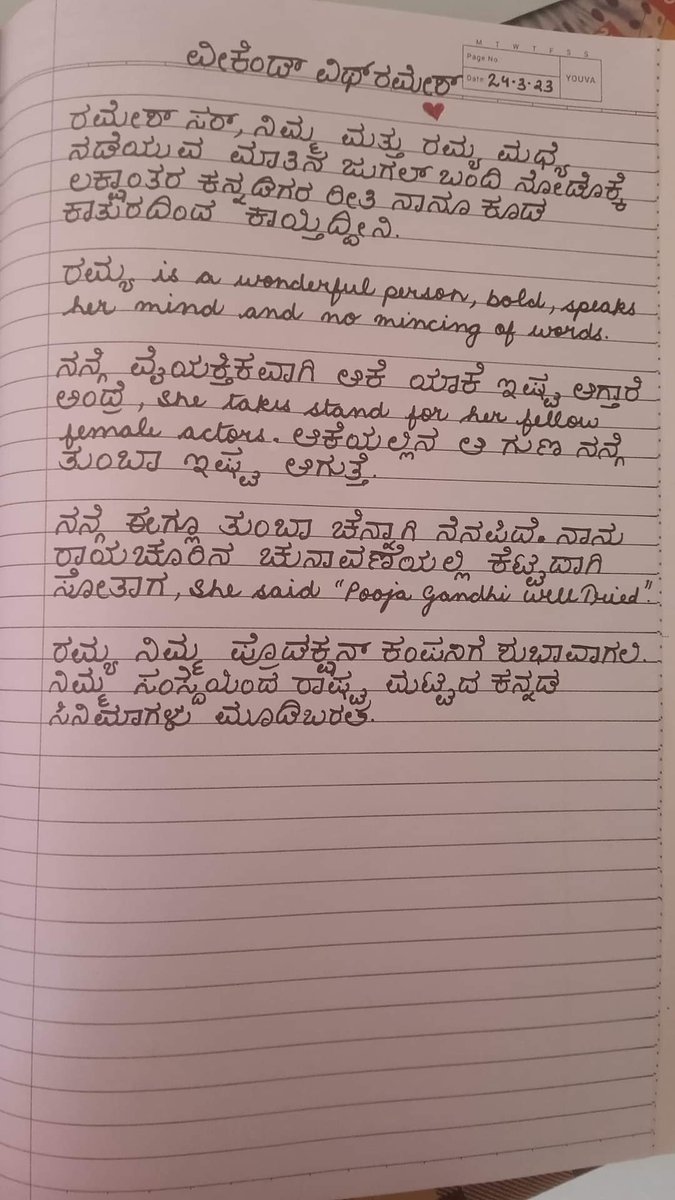 ವೀಕೆಂಡ್ ವಿಥ್ ರಮೇಶ್
M T W T F S S
Page No:
Date: 24.3.23
YOUVA
ರಮೇಶ್ ಸರ್, ನಿಮ್ಮ ಮತ್ತು ರಮ್ಯ ಮಧ್ಯೆ
ನಡೆಯುವ ಮಾತಿನ ಜುಗಲ್ ಬಂದಿ ನೋಡೊಕ್ಕೆ
ಲಕ್ಷಾಂತರ ಕನ್ನಡಿಗರ ರೀತಿ ನಾನೂ ಕೂಡ
ಕಾತುರದಿಂದ ಕಾಯ್ತಿದ್ದೀನಿ.
ರಮ್ಯ is a wonderful person, bold, speaks
her mind and no mincing of words.
ನನ್ಗೆ ವೈಯಕ್ತಿಕವಾಗಿ ಆಕೆ ಯಾಕೆ ಇಷ್ಟ ಆಗ್ತಾರೆ
ಅಂದ್ರೆ, she takes stand for her fellow
female actors. ಆಕೆಯಲ್ಲಿನ ಆ ಗುಣ ನನ್ಗೆ
ತುಂಬಾ ಇಷ್ಟ ಆಗುತ್ತೆ.
ನನ್ಗೆ ಈಗ್ಲೂ ತುಂಬಾ ಚೆನ್ನಾಗಿ ನೆನಪಿದೆ. ನಾನು
ರಾಯಚೂರಿನ ಚುನಾವಣೆಯಲ್ಲಿ ಕೆಟ್ಟದಾಗಿ
ಸೋತಾಗ, she said "Pooja Gandhi Well Tried".
ರಮ್ಯ ನಿಮ್ಮ ಪ್ರೊಡಕ್ಷನ್ ಕಂಪನಿಗೆ ಶುಭಾವಾಗಲಿ.
ನಿಮ್ಮ ಸಂಸ್ಥೆಯಿಂದ ರಾಷ್ಟ್ರ ಮಟ್ಟದ ಕನ್ನಡ
ಸಿನಿಮಾಗಳು ಮೂಡಿಬರಲಿ.